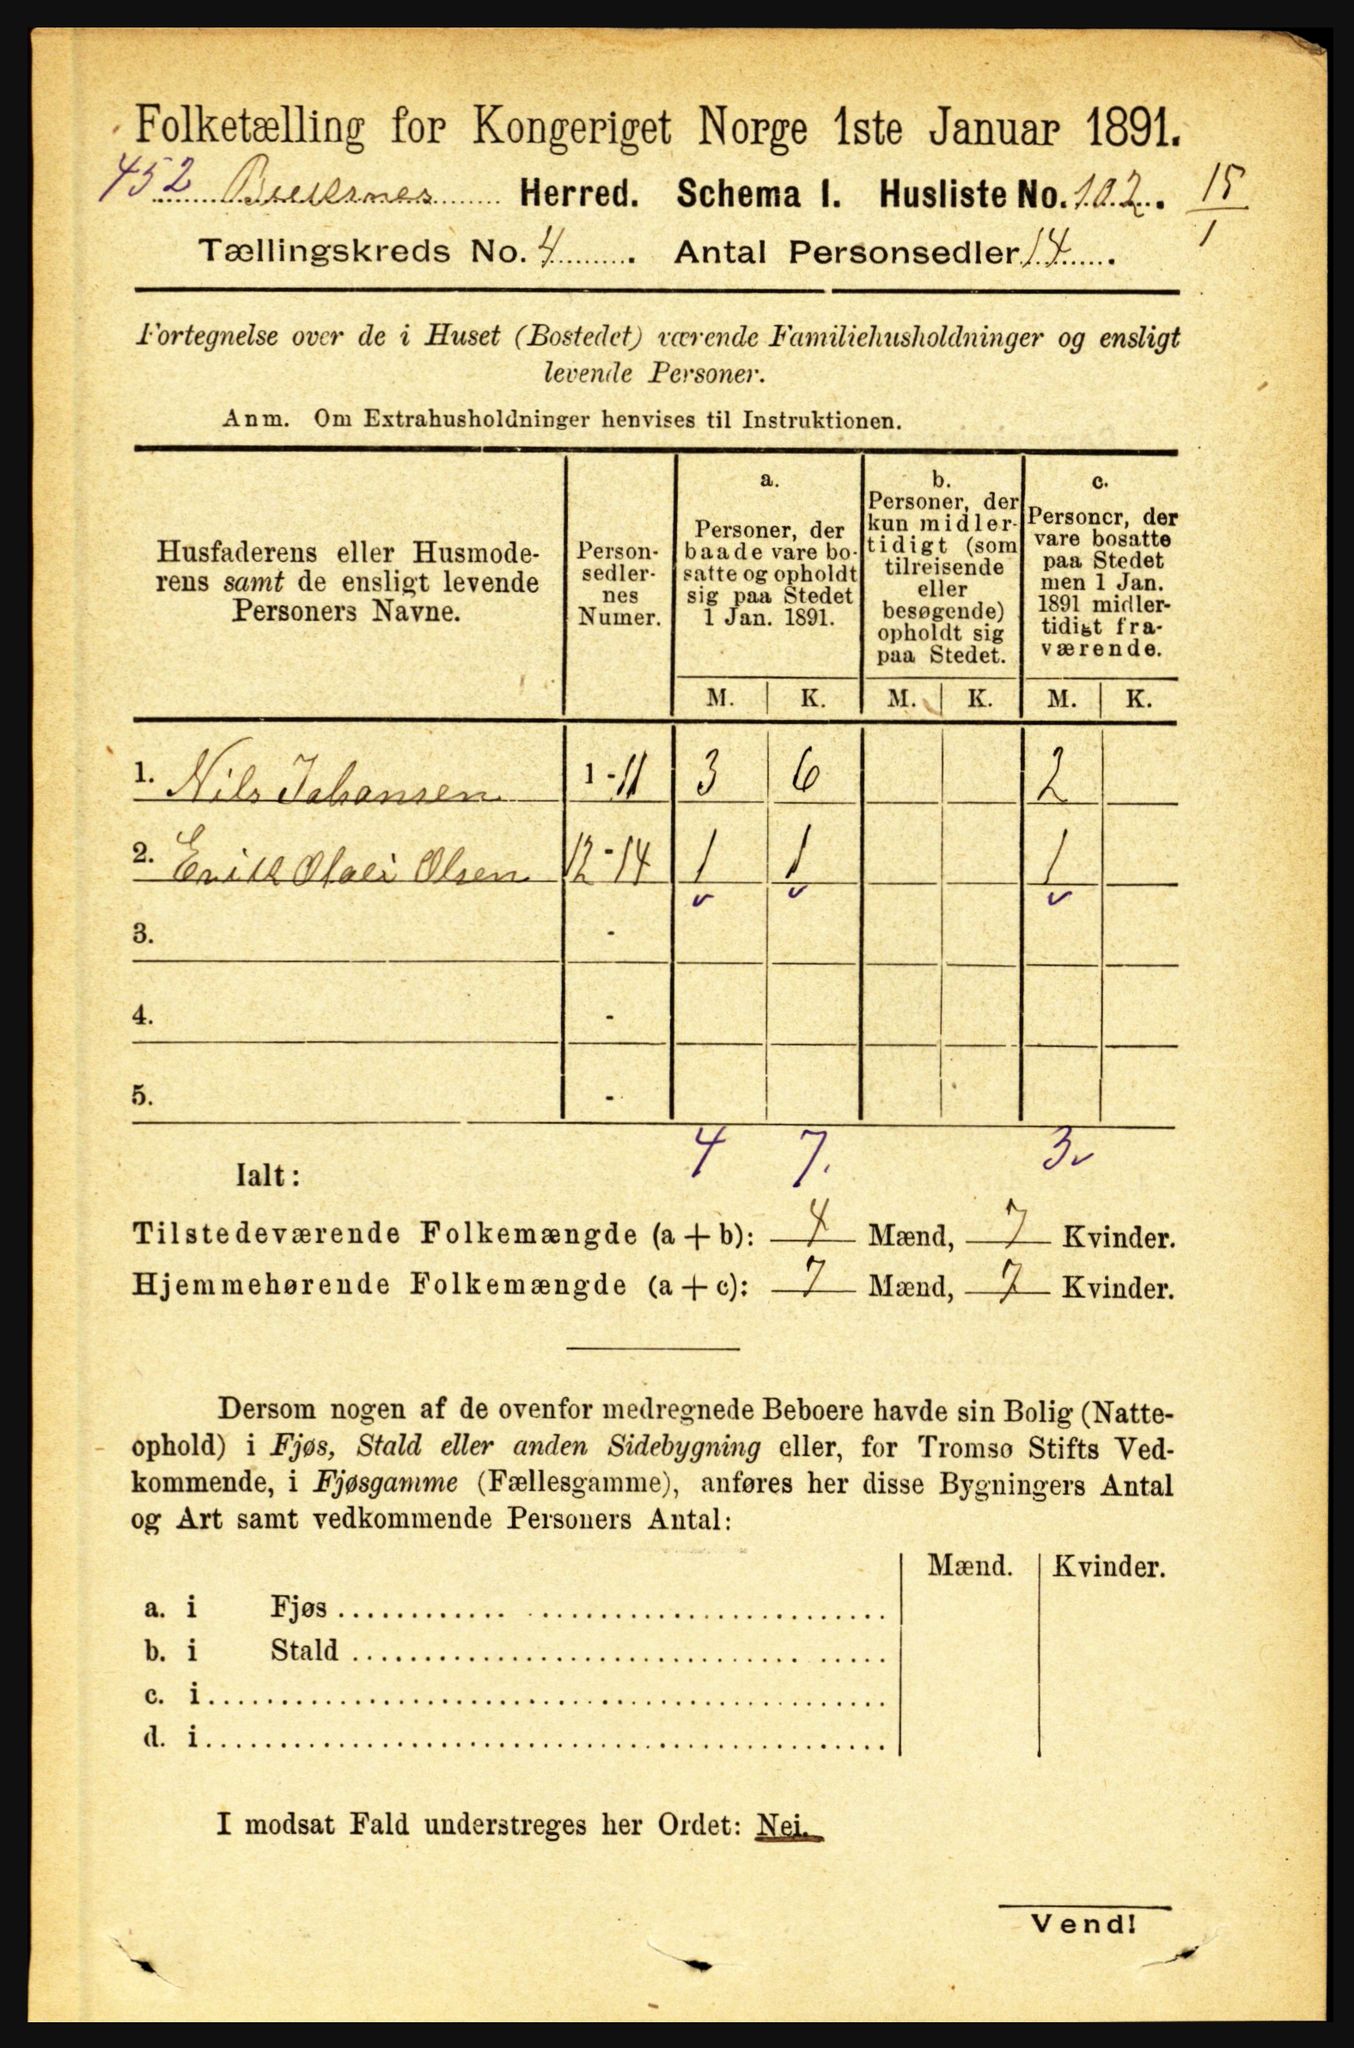 Folketælling for Kongeriget Norge 1ste Januar 1891.
452 Buksnes Herred. Schema I. Husliste No. 102. 15/1
Tællingskreds No. 4. Antal Personsedler 14.
Fortegnelse over de i Huset (Bostedet) værende Familiehusholdninger og ensligt
levende Personer.
Anm. Om Extrahusholdninger henvises til Instruktionen.
Husfaderens eller Husmode-
rens samt de ensligt levende
Personers Navne.
Person-
sedler-
nes
Numer.
a.
Personer, der
baade vare bo-
satte og opholdt
sig paa Stedet
1 Jan. 1891.
b.
Personer, der
kun midler-
tidigt (som
tilreisende
eller
besøgende)
opholdt sig
paa Stedet.
c.
Personer, der
vare bosatte
paa Stedet
men 1 Jan.
1891 midler-
tidigt fra-
værende.
M. K. M. K. M. K.
1. Nils Johansen 1-11 3 6 2
2. Erik Olai Olsen 12-14 1 1 1
3. -
4. -
5. -
Ialt: 4 7. 3
Tilstedeværende Folkemængde (a + b): 4 Mænd, 7 Kvinder.
Hjemmehørende Folkemængde (a + c): 7 Mænd, 7 Kvinder.
Dersom nogen af de ovenfor medregnede Beboere havde sin Bolig (Natte-
ophold) i Fjøs, Stald eller anden Sidebygning eller, for Tromsø Stifts Ved-
kommende, i Fjøsgamme (Fællesgamme), anføres her disse Bygningers Antal
og Art samt vedkommende Personers Antal:
Mænd. Kvinder.
a. i Fjøs
b. i Stald
c. i
d. i
I modsat Fald understreges her Ordet: Nei.
Vend!